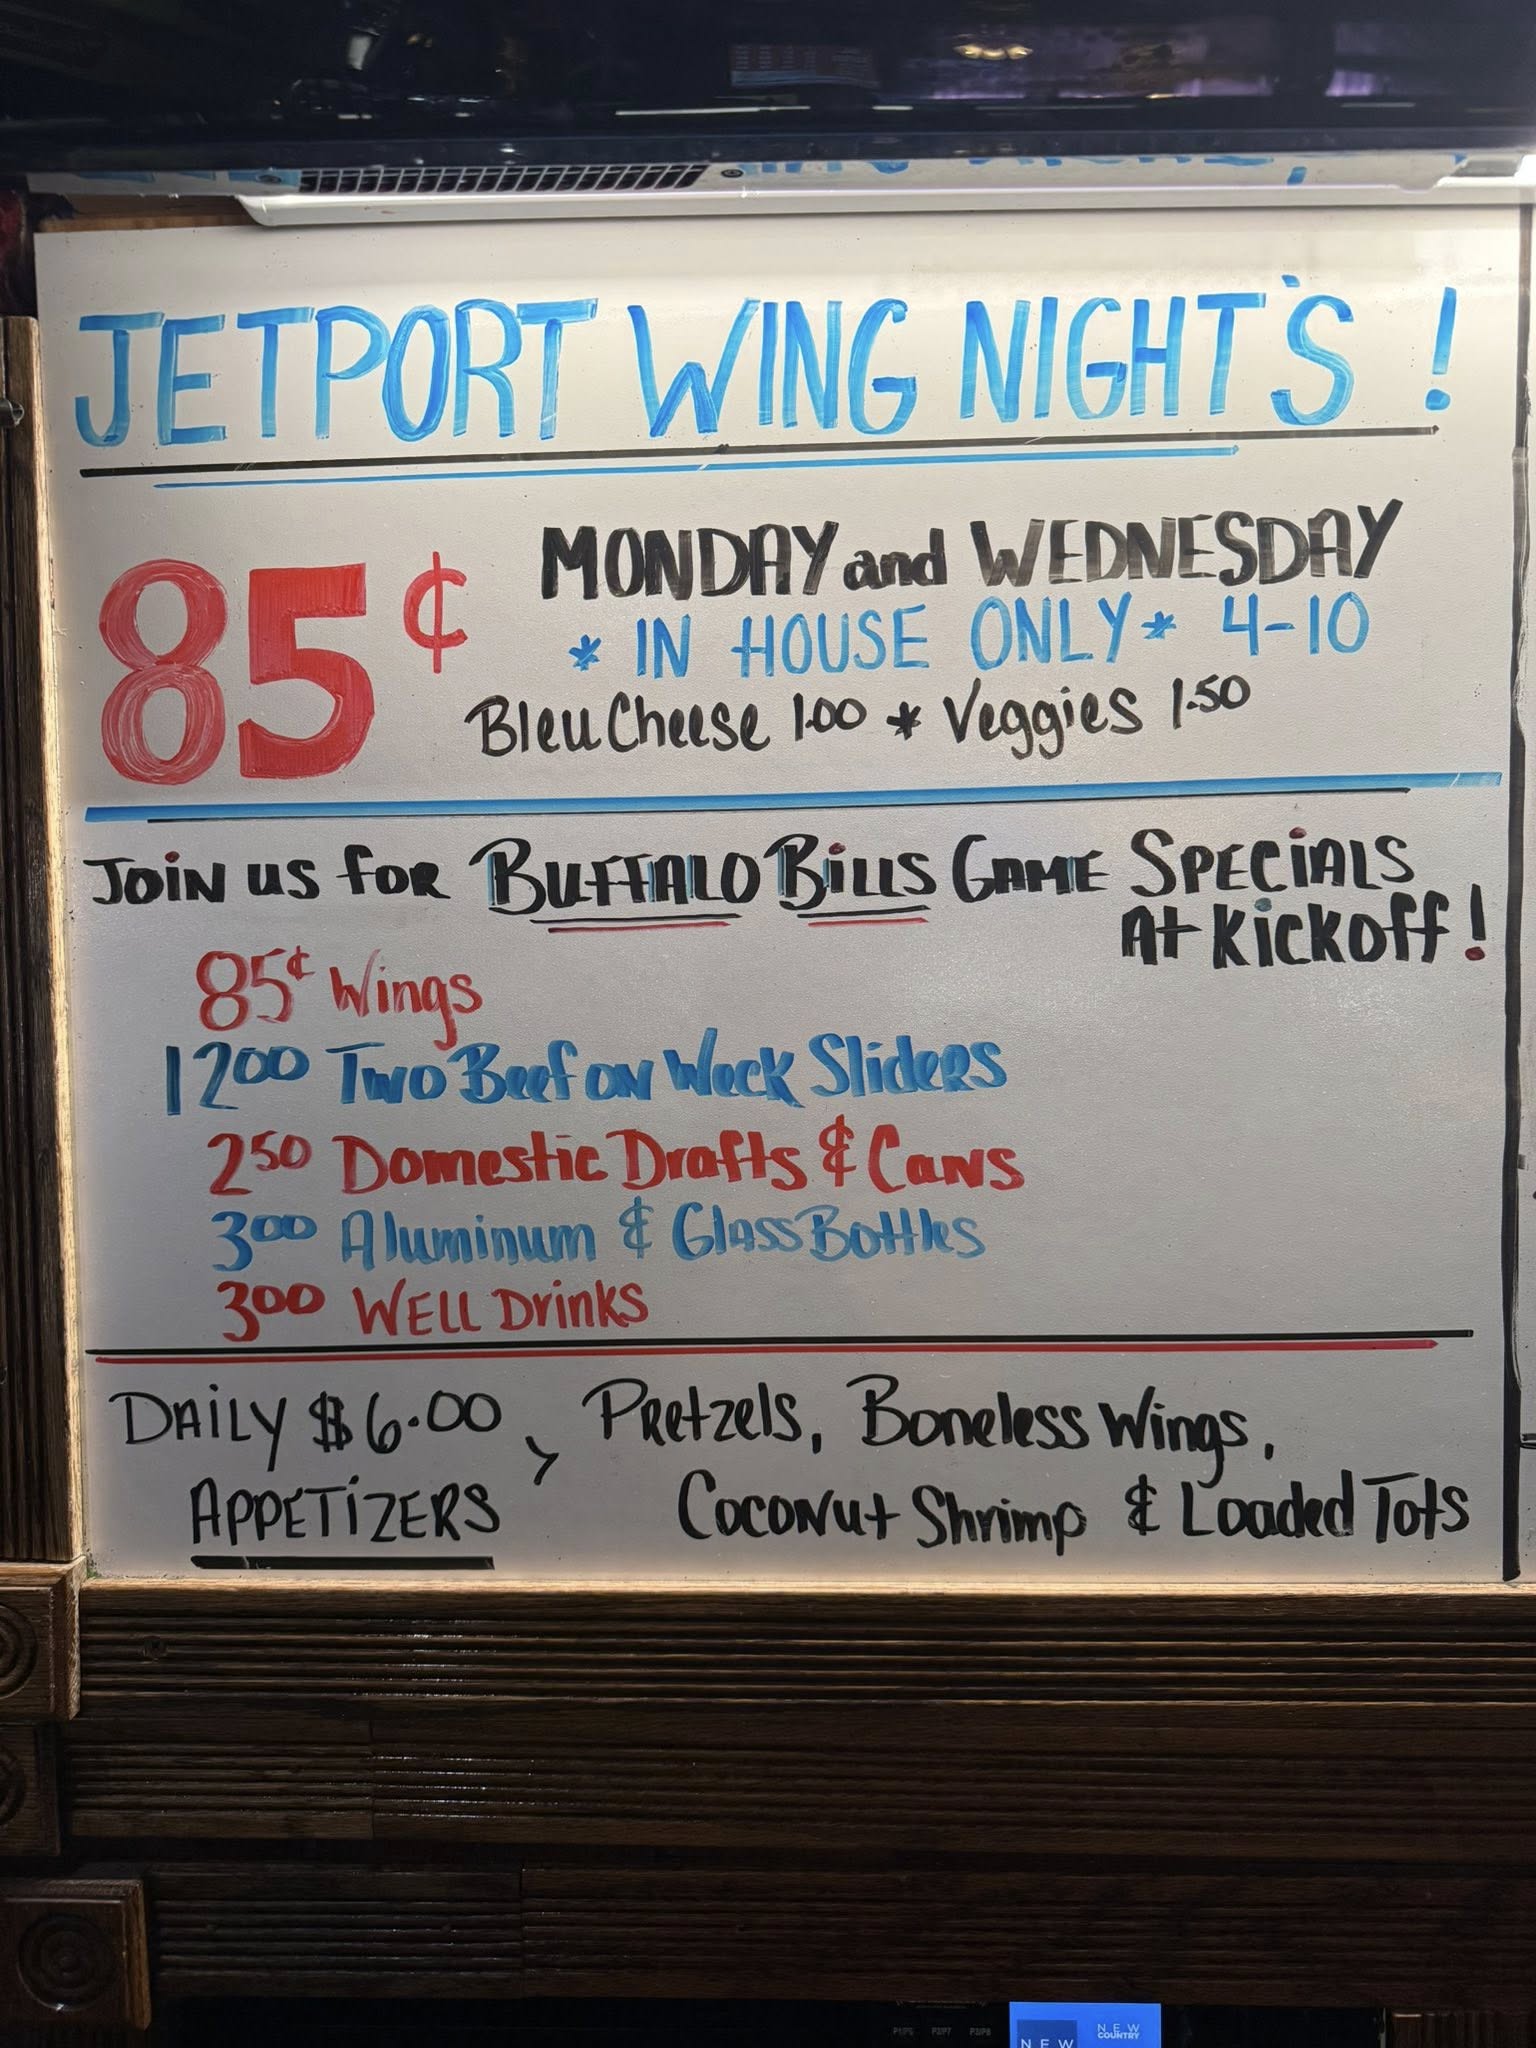 JETPORT WING NIGHT'S !
85¢
MONDAY and WEDNESDAY
* IN HOUSE ONLY * 4-10
Bleu Cheese 1.00 * Veggies 1.50
Join us for Buffalo Bills Game Specials
At Kickoff !
85¢ Wings
12⁰⁰ Two Beef on Weck Sliders
2⁵⁰ Domestic Drafts & Cans
3⁰⁰ Aluminum & Glass Bottles
3⁰⁰ Well Drinks
Daily $6.00
Appetizers
, Pretzels, Boneless Wings,
Coconut Shrimp & Loaded Tots
P1/P5 P3/P7 P3/P8
NEW
NEW
COUNTRY